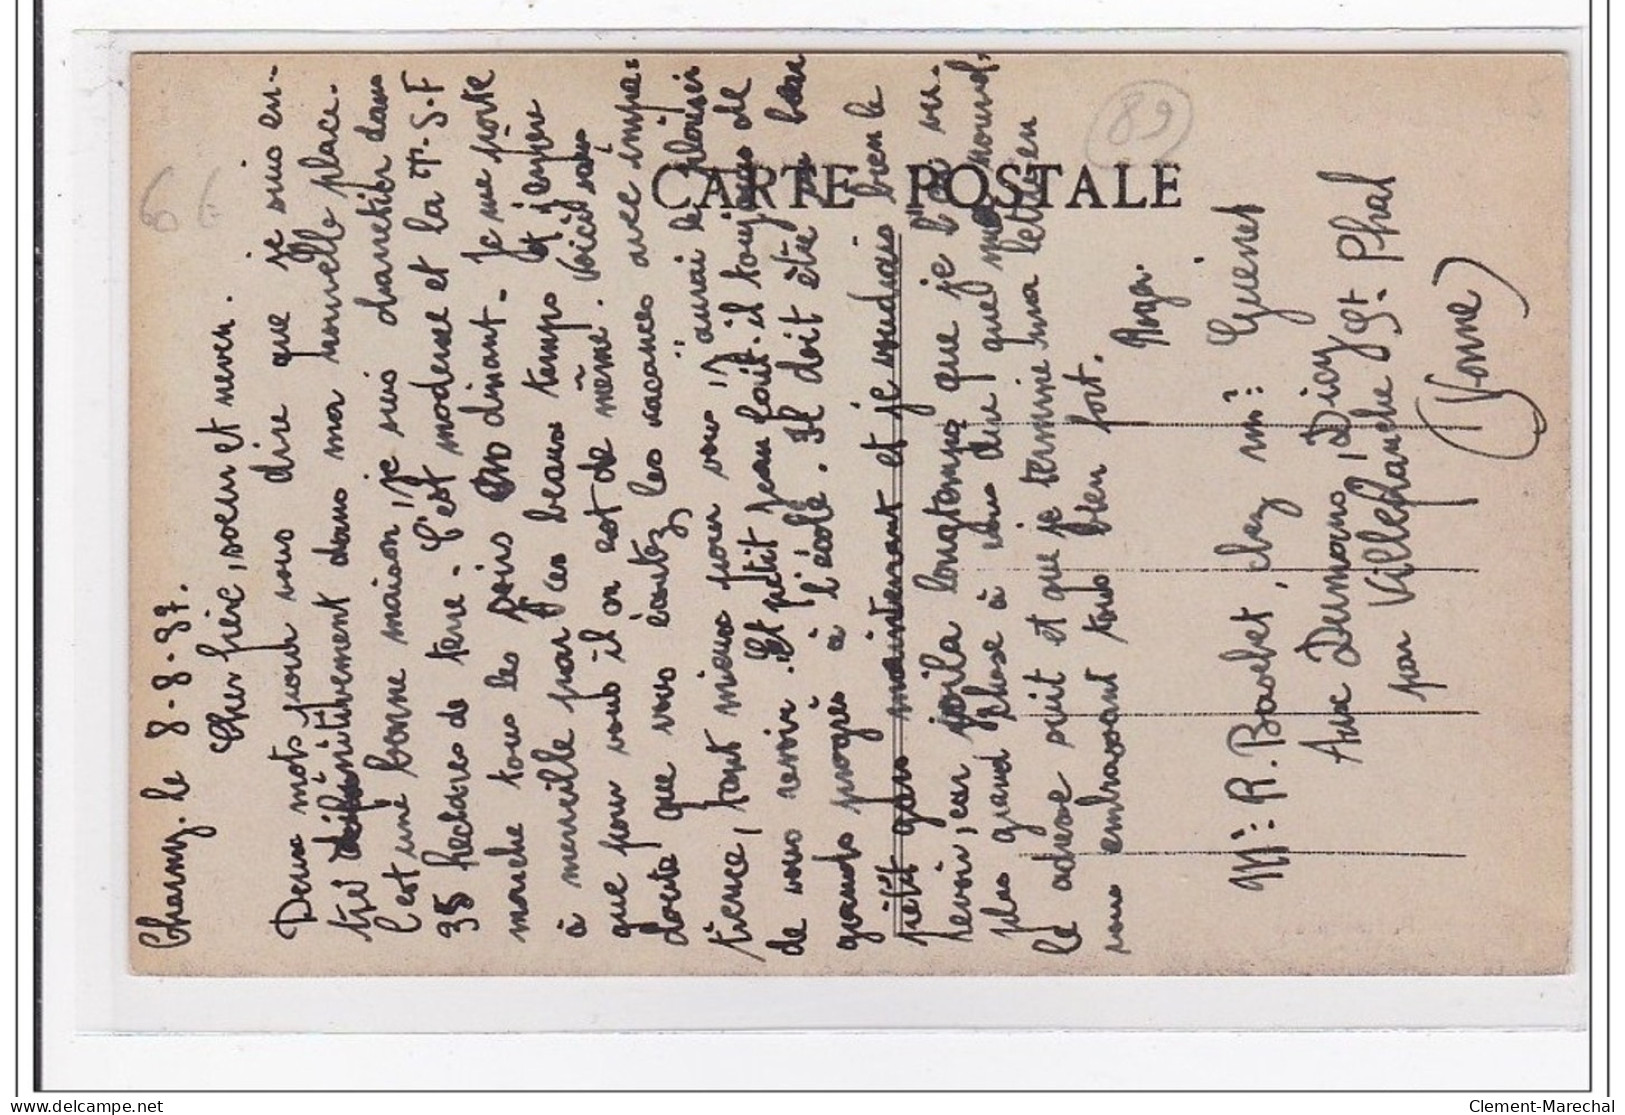 Charny. le 8-8-37.
Cher frère, soeur et neveu.
Deux mots pour vous dire que je suis en-
trée définitivement dans ma nouvelle place.
C'est une bonne maison, je suis charretier dans
38 hectares de terre. C'est moderne et la T.S.F
marche tous les soirs en dinant. Je me porte
à merveille par ces beaux temps et j'espère
que pour vous il en est de même. Voici sans
doute que vous écoutez les vacances avec impa=
tience, tant mieux pour vous j'aurai le plaisir
de vous revoir. Et petit Jean fait-il toujours de
grands progrès à l'école. Il doit être un beau
petit gars maintenant et je voudrais bien le
revoir, car voila longtemps que je l'ai vu.
plus grand chose à vous dire que ma nouvel-
le adresse suit et que je termine ma lettre en
vous embrassant tous bien fort.
CARTE POSTALE
89
Mr: R. Baobet, chez mr: Guenet
Aux Dumons, Dicy
par Villefranche St. Phal
(Yonne)
Clement-Marechal
delcampe.net